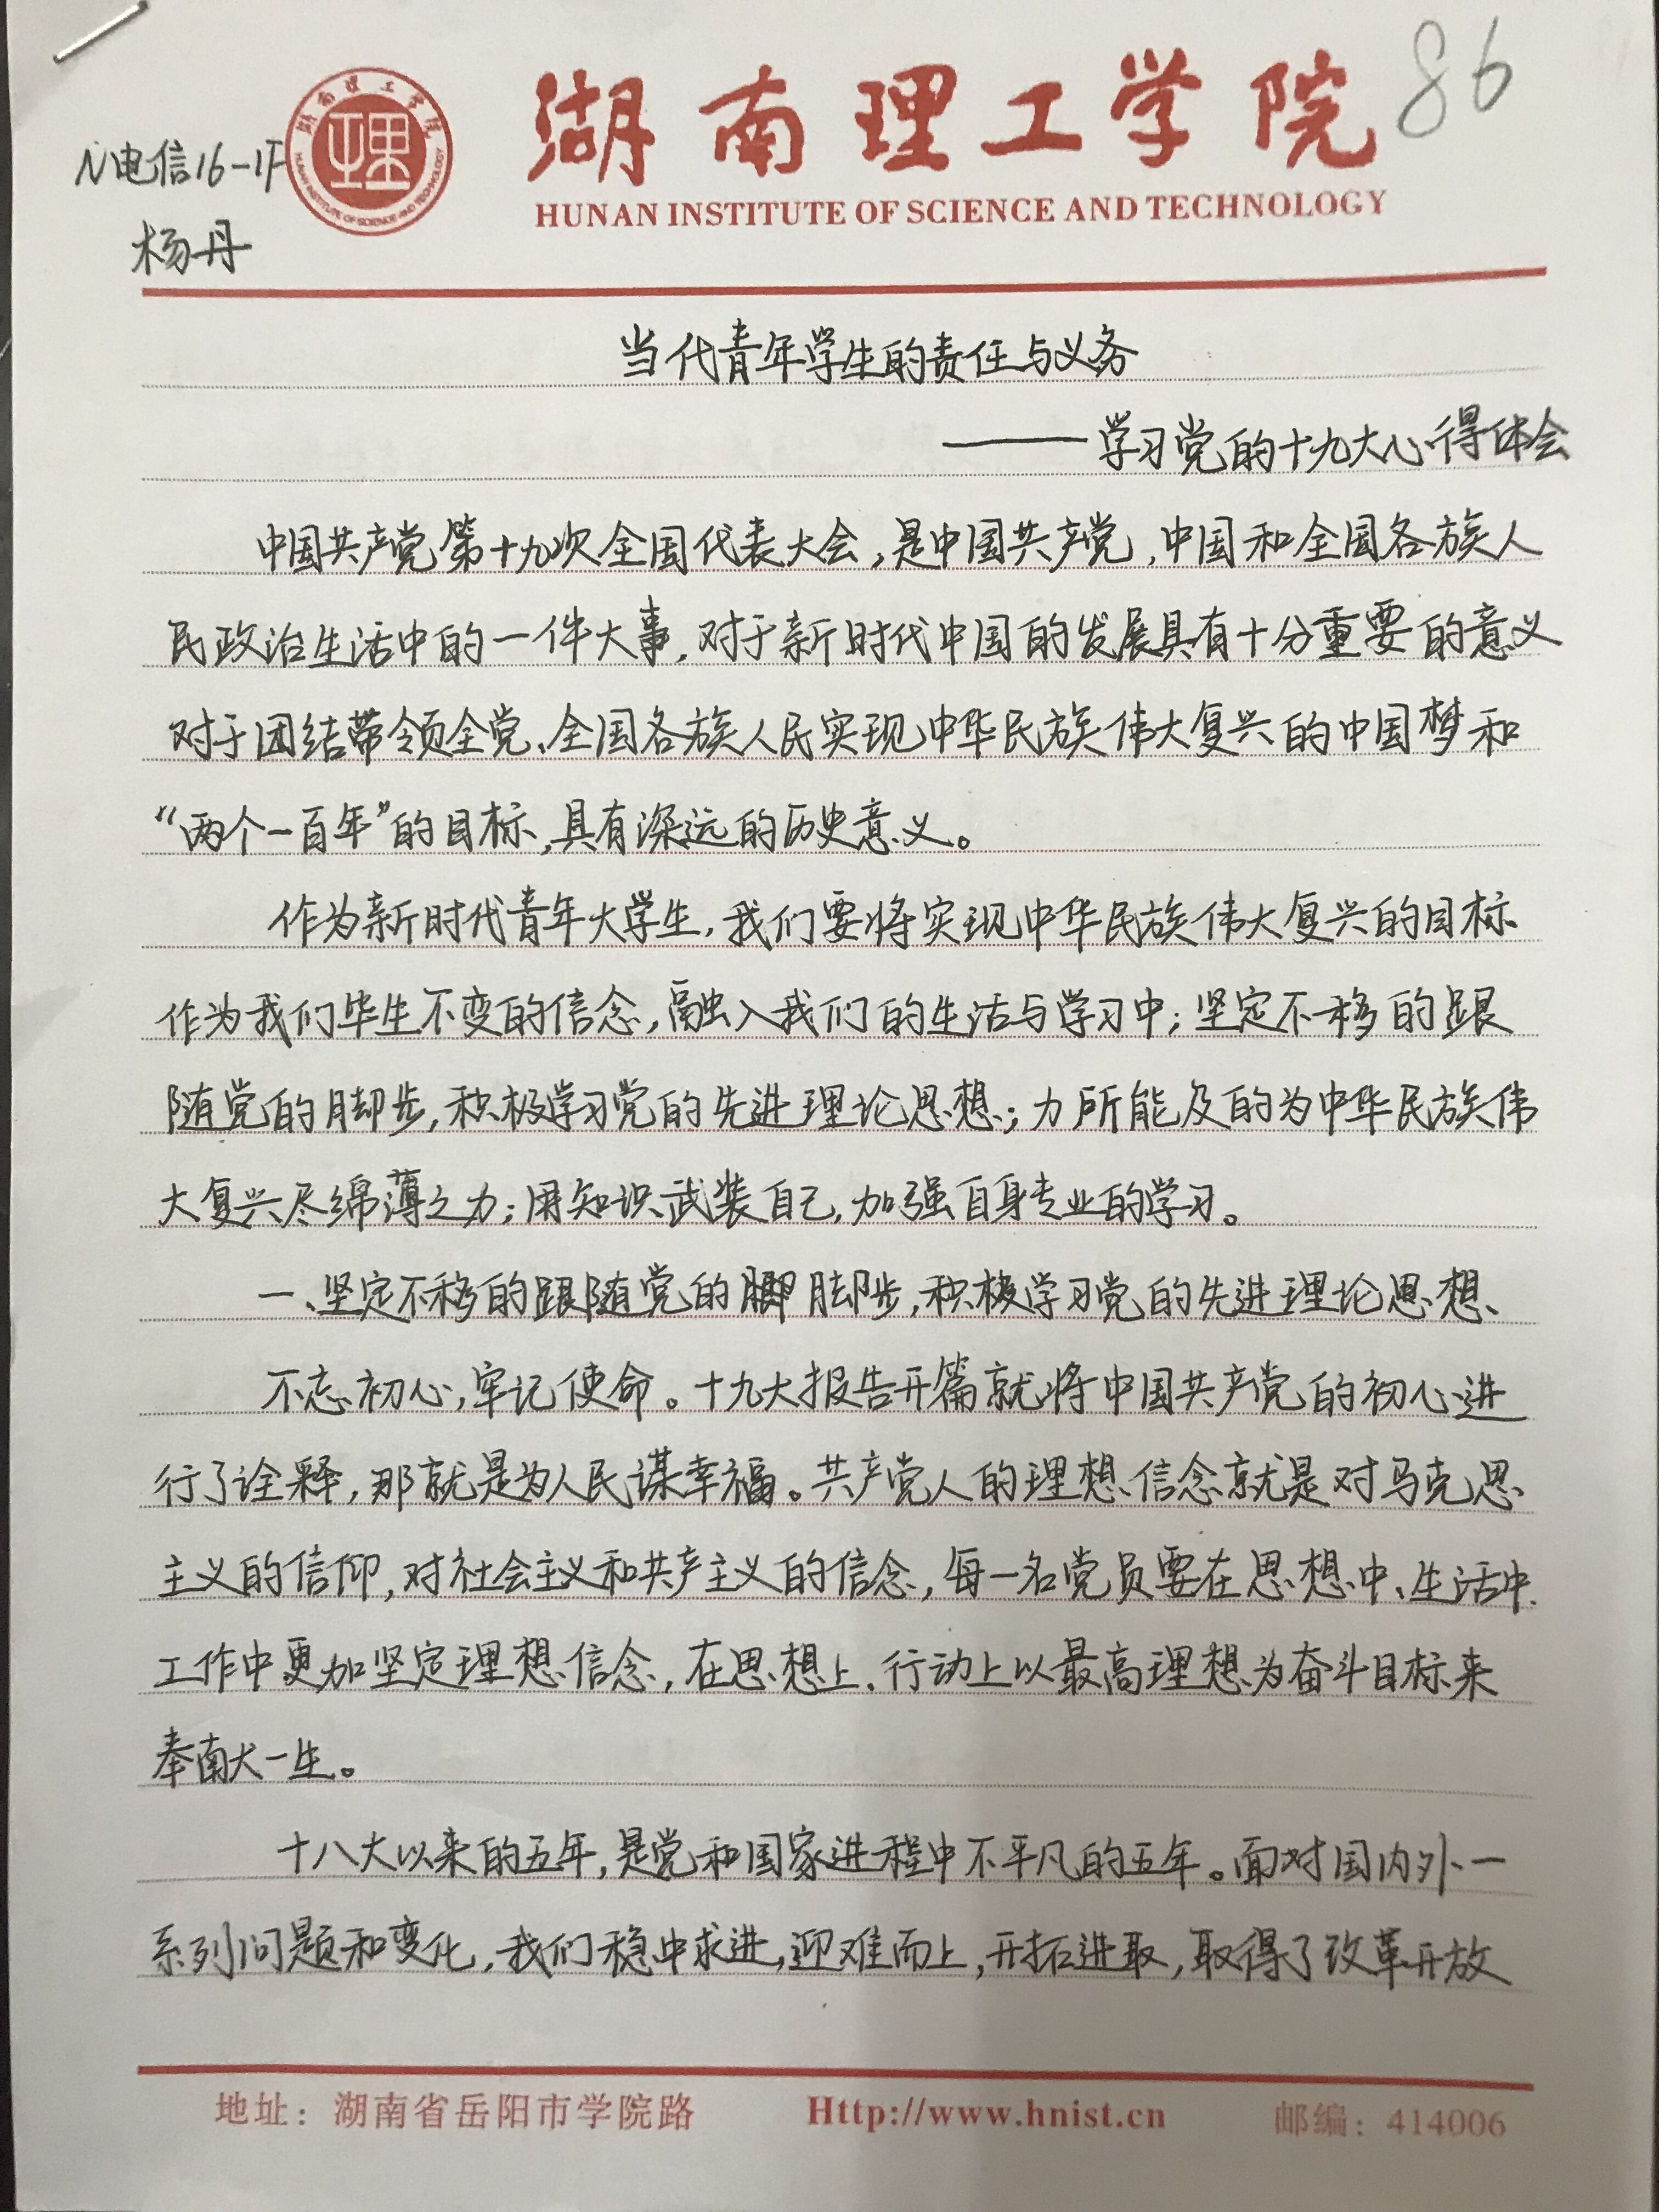 湖南理工学院
86
HUNAN INSTITUTE OF SCIENCE AND TECHNOLOGY
湖南理工学院
HUNAN INSTITUTE OF SCIENCE AND TECHNOLOGY
N电信16-1F
杨丹
当代青年学生的责任与义务
——学习党的十九大心得体会
中国共产党第十九次全国代表大会,是中国共产党,中国和全国各族人
民政治生活中的一件大事,对于新时代中国的发展具有十分重要的意义
对于团结带领全党、全国各族人民实现中华民族伟大复兴的中国梦和
“两个一百年”的目标,具有深远的历史意义。
作为新时代青年大学生,我们要将实现中华民族伟大复兴的目标
作为我们毕生不变的信念,融入我们的生活与学习中;坚定不移的跟
随党的脚步,积极学习党的先进理论思想;力所能及的为中华民族伟
大复兴尽绵薄之力;用知识武装自己,加强自身专业的学习。
一、坚定不移的跟随党的脚步,积极学习党的先进理论思想、
不忘初心,牢记使命。十九大报告开篇就将中国共产党的初心进
行了诠释,那就是为人民谋幸福。共产党人的理想信念就是对马克思
主义的信仰,对社会主义和共产主义的信念,每一名党员要在思想中、生活中、
工作中更加坚定理想信念,在思想上、行动上以最高理想为奋斗目标来
奉献一生。
十八大以来的五年,是党和国家进程中不平凡的五年。面对国内外一
系列问题和变化,我们稳中求进,迎难而上,开拓进取,取得了改革开放
地址:湖南省岳阳市学院路 Http://www.hnist.cn 邮编:414006